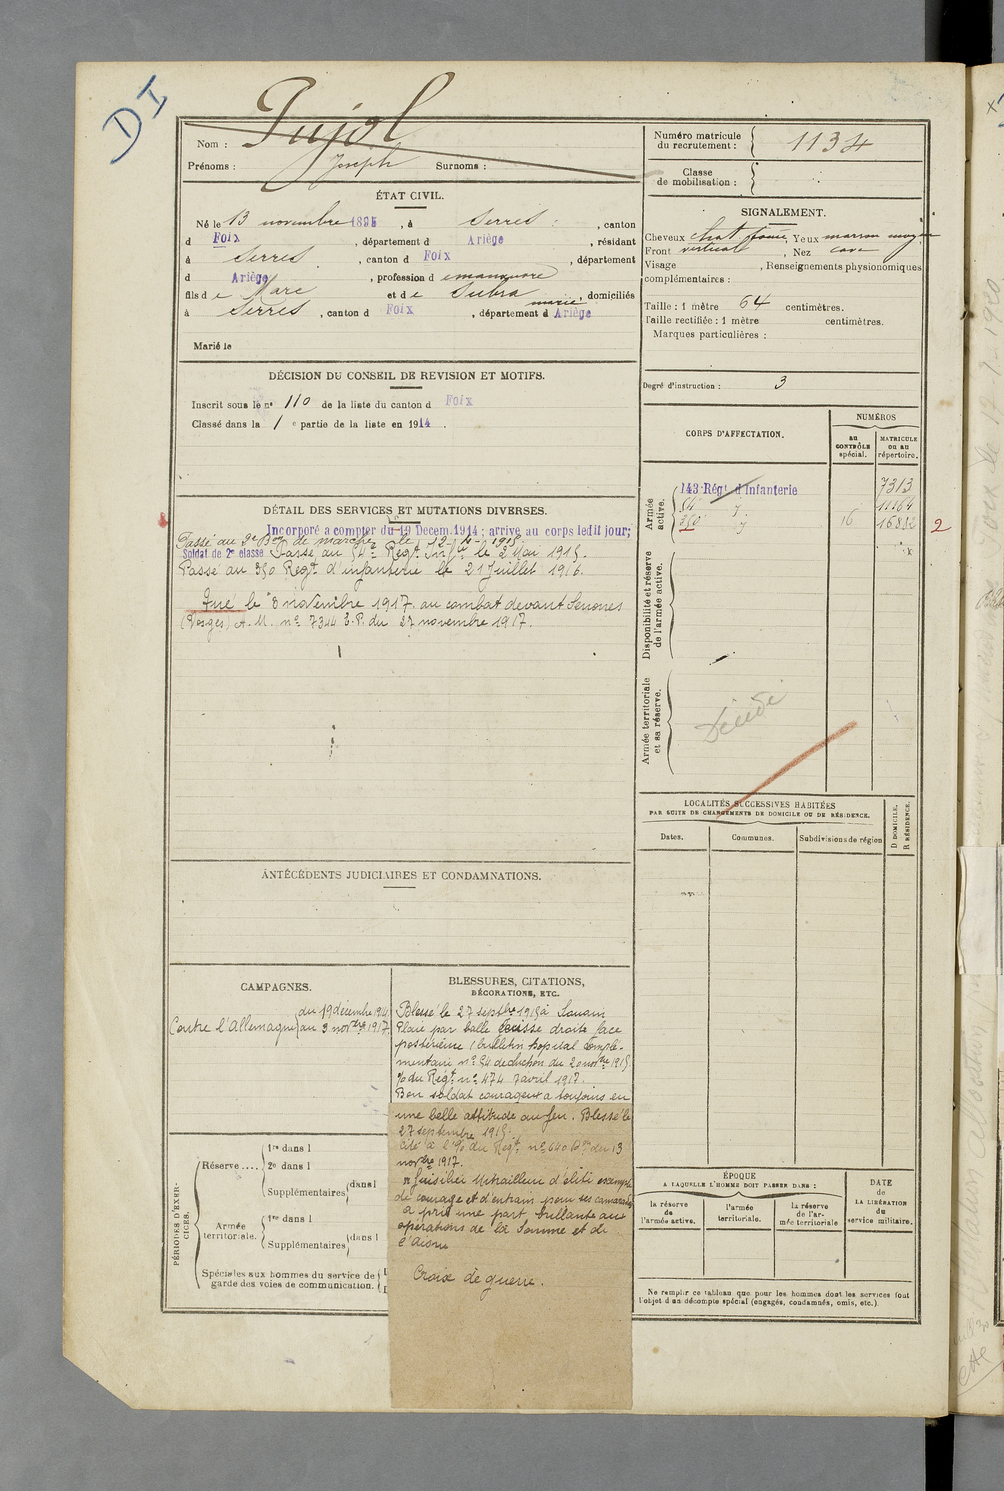 DI
Nom : Pujol
Prénoms : Joseph Surnoms :
Numéro matricule
du recrutement : 1134
Classe
de mobilisation :
ÉTAT CIVIL.
Né le 13 novembre 1895, à Serres, canton
d Foix, département d Ariège, résidant
à Serres, canton d Foix, département
d Ariège, profession d
fils de Marc et de Subra marie, domiciliés
à Serres, canton d Foix, département d Ariège
Marié le
SIGNALEMENT.
Cheveux chat foncé Yeux marron moyen
Front vertical, Nez cave
Visage , Renseignements physionomiques
complémentaires :
Taille : 1 mètre 64 centimètres.
Taille rectifiée : 1 mètre centimètres.
Marques particulières :
Degré d'instruction : 3
DÉCISION DU CONSEIL DE REVISION ET MOTIFS.
Inscrit sous le n° 110 de la liste du canton d Foix
Classé dans la 1e partie de la liste en 1914.
DÉTAIL DES SERVICES ET MUTATIONS DIVERSES.
Incorporé a compter du 19 Decem. 1914 ; arrivé au corps ledit jour;
Passé au 9e Bon de marche le 12-4-1915
Soldat de 2e classe Passé au 54e Régt Infie le 2 Mai 1915.
Passé au 350 Regt d'infanterie le 21 Juillet 1916.
Tué le 8 novembre 1917 au combat devant Senones
(Vosges) A.M. n° 7344 E.P. du 27 novembre 1917.
CORPS D'AFFECTATION.
NUMÉROS
au
CONTRÔLE
spécial.
MATRICULE
ou au
répertoire.
Armée
active.
143 Régt d'Infanterie 7313
54 ″ 11164
350 ″ 16 16882
2
Disponibilité et réserve
de l'armée active.
Armée territoriale
et sa réserve.
Décédé
LOCALITÉS SUCCESSIVES HABITÉES
PAR SUITE DE CHANGEMENTS DE DOMICILE OU DE RÉSIDENCE.
Dates.
Communes.
Subdivisions de région
D DOMICILE.
R RÉSIDENCE.
ANTÉCÉDENTS JUDICIAIRES ET CONDAMNATIONS.
CAMPAGNES.
Contre l'Allemagne du 19 décembre 1914
au 3 novbre 1917
BLESSURES, CITATIONS,
DÉCORATIONS, ETC.
Blessé le 27 septbre 1915 à Souain
Plaie par balle cuisse droite face
postérieure (bulletin hopital complé-
mentaire n° 54 du 20 novbre 1915
% du Régt n° 474 7 avril 1917.
Bon soldat courageux a toujours eu
une belle attitude au feu. Blessé le
27 septembre 1915.
Cité à l'% du Regt n° 640 du 13
novbre 1917.
Fusilier Mitrailleur d'élite exemple
de courage et d'entrain pour ses camarades
a pris une part brillante aux
opérations de la Somme et de
l'Aisne
Croix de guerre.
PÉRIODES D'EXER-
CICES.
Réserve ....
1re dans l
2e dans l
Supplémentaires dans l
Armée
territoriale.
1re dans l
Supplémentaires dans l
Spéciales aux hommes du service de
garde des voies de communication.
ÉPOQUE
A LAQUELLE L'HOMME DOIT PASSER DANS :
la réserve
de
l'armée active.
l'armée
territoriale.
la réserve
de l'ar-
mée territoriale
DATE
de
LA LIBÉRATION
du
service militaire.
Ne remplir ce tableau que pour les hommes dont les services font
l'objet d'un décompte spécial (engagés, condamnés, omis, etc.)